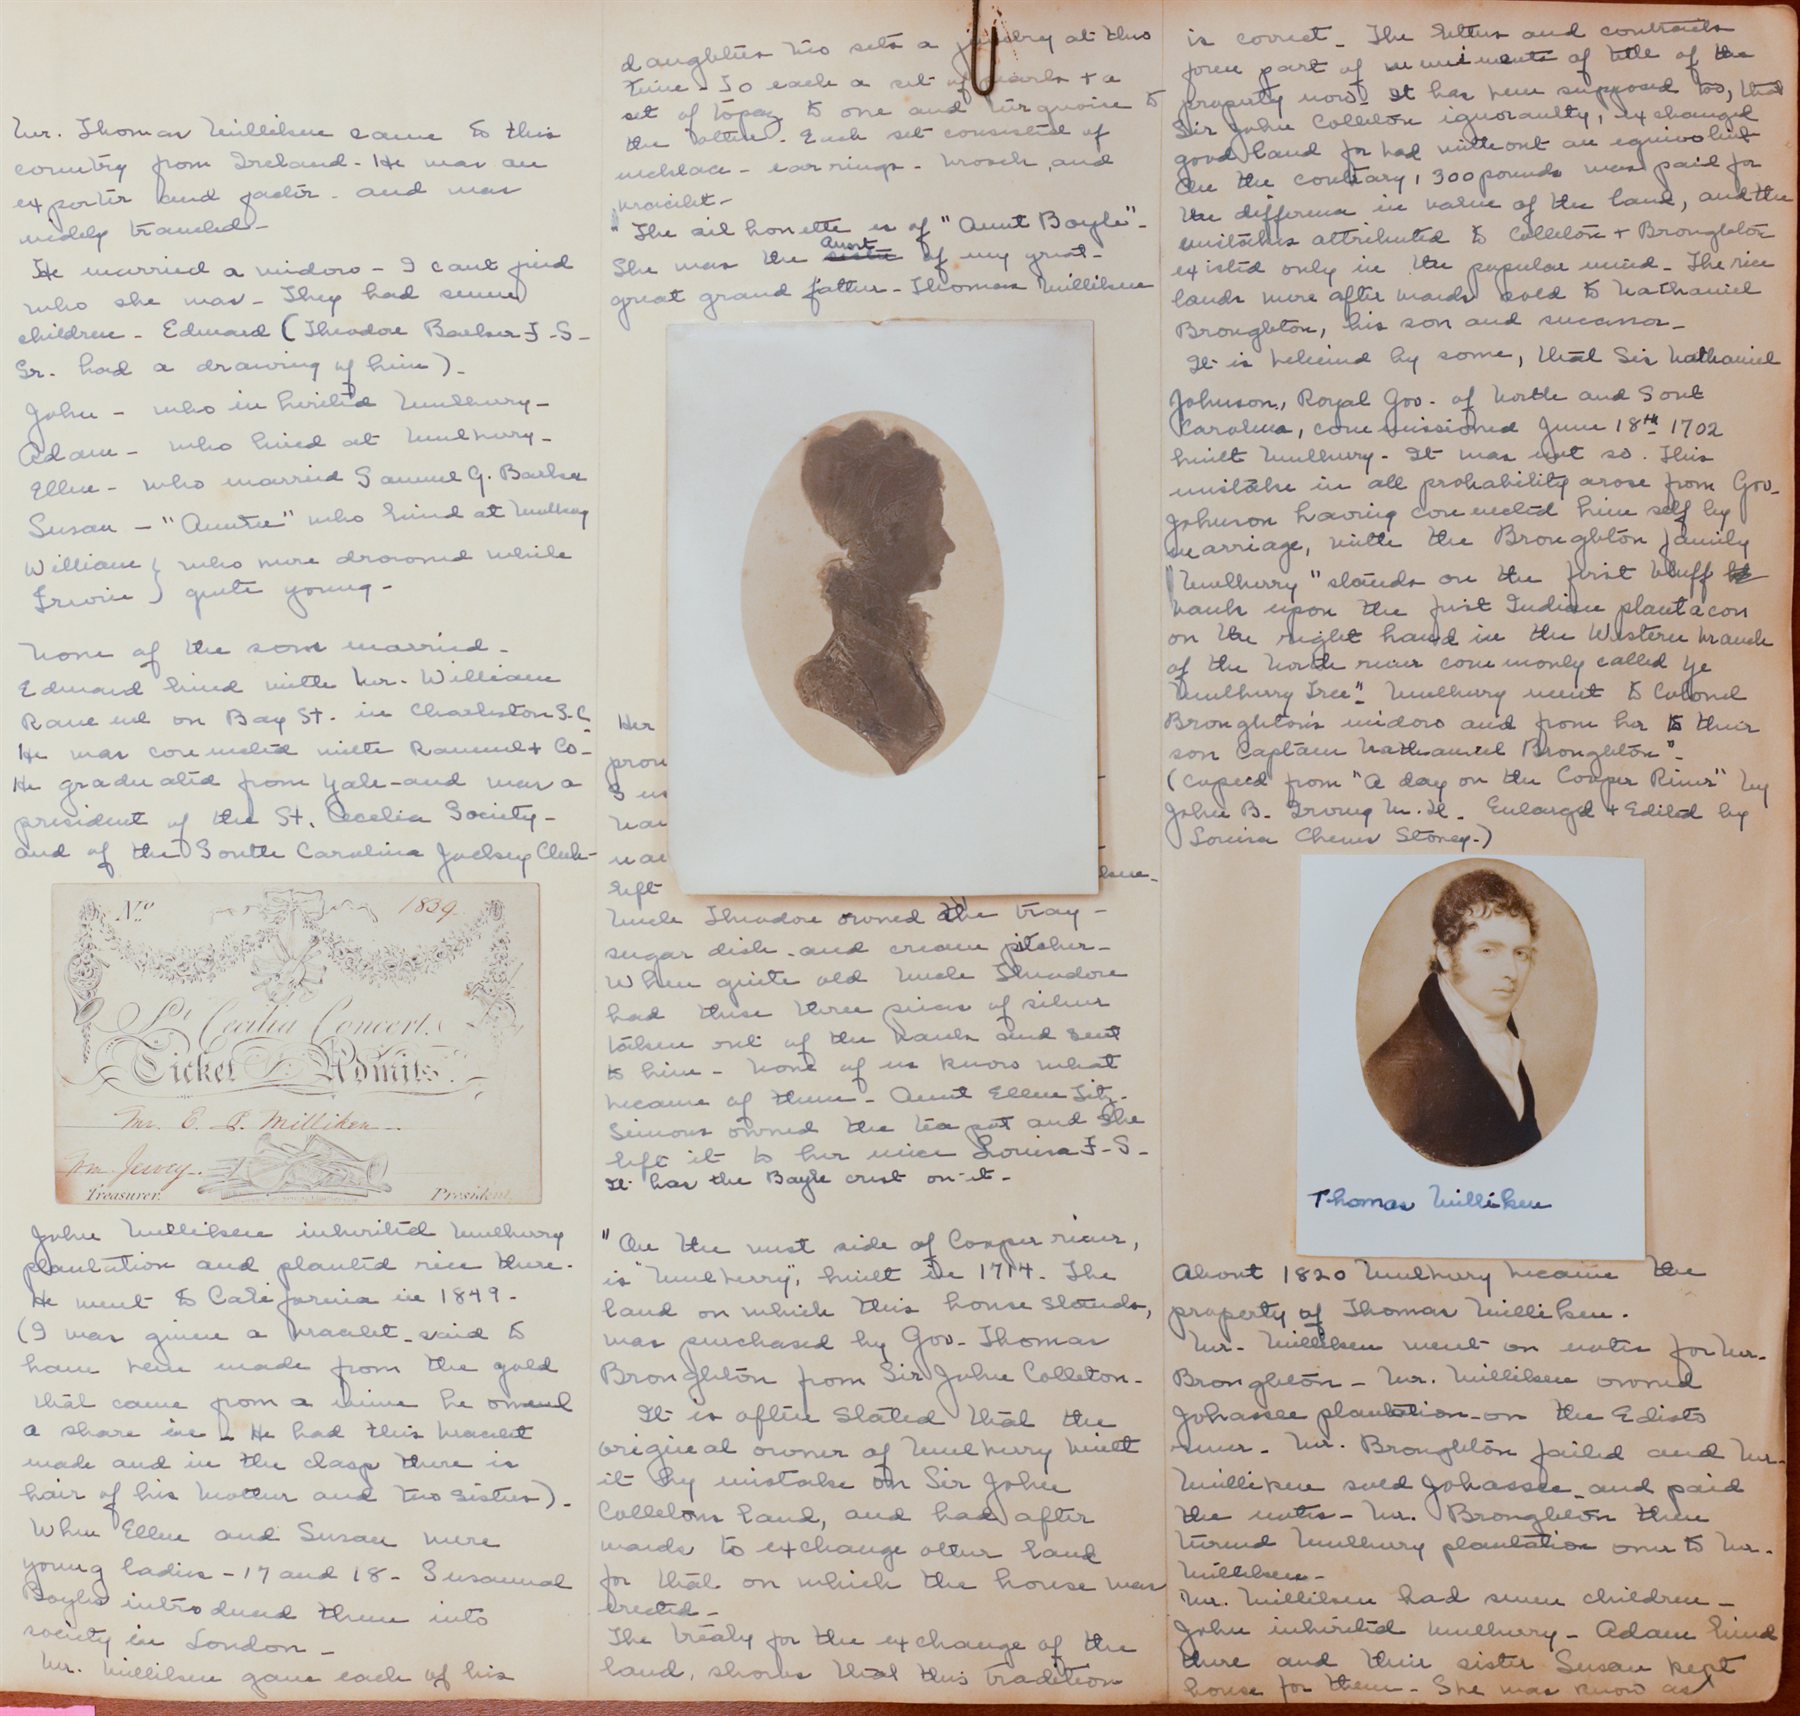 Mr. Thomas Milliken came to this
country from Ireland - He was an
exporter and factor - and was
widely traveled -
He married a widow - I cant find
who she was - They had seven
children - Edward (Theodore Barker F-S-
Sr. had a drawing of him) -
John - who inherited Mulberry -
Adam - who lived at Mulberry -
Ellen - who married Samuel G. Barker
Susan - "Auntie" who lived at Mulberry
William } who were drowned while
Irvine } quite young -
None of the sons married -
Edward lived with Mr. William
Ravenel on Bay St. in Charleston S.C.
He was connected with Ravenel + Co -
He graduated from Yale - and was a
president of the St. Cecelia Society -
and of the South Carolina Jockey Club -
No. 1839
St. Cecilia Concert.
Ticket Admits
Mr. E. Milliken
Wm Jervey.
Treasurer. President.
John Milliken inherited Mulberry
plantation and planted rice there.
He went to California in 1849 -
(I was given a bracelet - said to
have been made from the gold
that came from a mine he owned
a share in - He had this bracelet
made and in the clasp there is
hair of his mother and two sisters) -
When Ellen and Susan were
young ladies - 17 and 18 - Susannah
Boyle introduced them into
society in London -
Mr. Milliken gave each of his
daughters two sets of jewelry at this
time - To each a set of pearls + a
set of topaz to one and turquoise to
the other. Each set consisted of
necklace - earrings - brooch, and
bracelet -
"The silhouette is of "Aunt Boyle" -
She was the aunt of my great -
great grandfather - Thomas Milliken
Her
left
Uncle Theodore owned the tray -
sugar dish - and cream pitcher -
When quite old Uncle Theodore
had these three pieces of silver
taken out of the bank and sent
to him - None of us know what
became of them - Aunt Ellen Fitz-
Simons owned the tea pot and she
left it to her niece Louisa F-S-
It has the Boyle crest on it -
"On the west side of Cooper river,
is "Mulberry", built in 1714. The
land on which this house stands,
was purchased by Gov. Thomas
Broughton from Sir John Colleton -
It is often stated that the
original owner of Mulberry built
it by mistake on Sir John
Colletons land, and had after
wards to exchange other land
for that on which the house was
erected -
The treaty for the exchange of the
land, shows that this tradition
is correct - The letters and contracts
form part of muniments of title of the
property now - It has been supposed too, that
Sir John Colleton ignorantly, exchanged
good land for bad without an equivalent
On the contrary, 300 pounds was paid for
the difference in value of the land, and the
mistakes attributed to Colleton + Broughton
existed only in the popular mind - The rice
lands were after wards sold to Nathaniel
Broughton, his son and successor -
It is believed by some, that Sir Nathaniel
Johnson, Royal Gov. of North and South
Carolina, commissioned June 18th 1702
built Mulberry - It was not so. This
mistake in all probability arose from Gov.
Johnson having connected him self by
marriage, with the Broughton family
"Mulberry" stands on the first bluff
bank upon the first Indian plantacon
on the right hand in the Western branch
of the North river commonly called Ye
Mulberry Tree" - Mulberry went to Colonel
Broughton's widow and from her to their
son Captain Nathaniel Broughton" -
(Copied from "A day on the Cooper River" by
John B. Irving M.D. Enlarged + Edited by
Louisa Cheves Stoney -)
Thomas Milliken
About 1820 Mulberry became the
property of Thomas Milliken.
Mr. Milliken went on notes for Mr.
Broughton - Mr. Milliken owned
Johassee plantation - on the Edisto
river - Mr. Broughton failed and Mr.
Milliken sold Johassee - and paid
the notes - Mr. Broughton then
turned Mulberry plantation over to Mr.
Milliken -
Mr. Milliken had seven children -
John inherited Mulberry - Adam lived
there and their sister Susan kept
house for them - She was know as